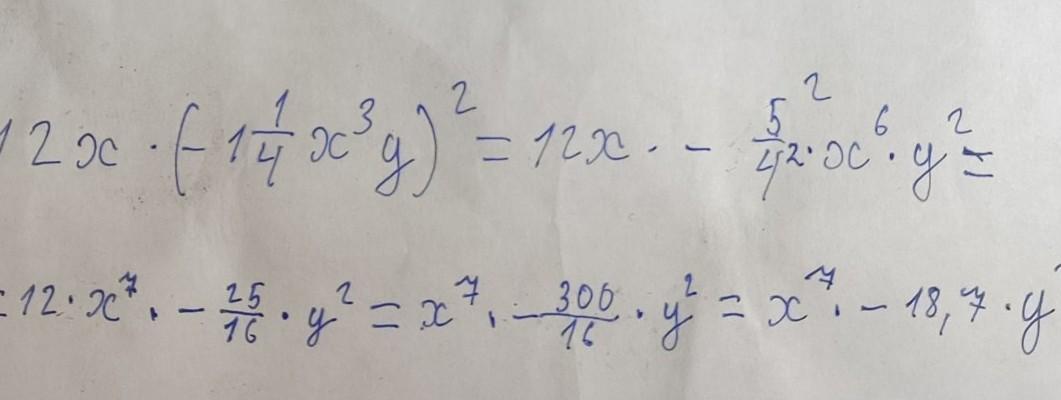 12x · (-1 1/4 x³y)² = 12x · - 5²/4² · x⁶ · y² =
= 12 · x⁷ · - 25/16 · y² = x⁷ · - 300/16 · y² = x⁷ · - 18,7 · y